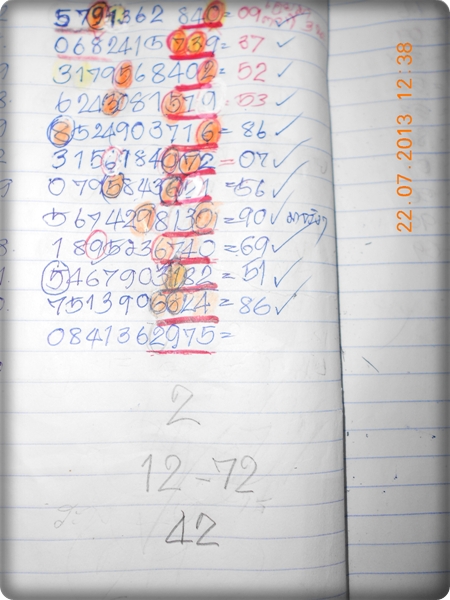 5791362 840 = 09
0682415739 = 37 ✓
3179568402 = 52 ✓
6243081579 = 53 ✓
8524903716 = 86 ✓
3156984072 = 07 ✓
079584361 = 56 ✓
5674298130 = 90 ✓
1895236740 = 69 ✓
5467903182 = 51 ✓
7513906624 = 86 ✓
0841362975 =
2
12 - 72
42
22.07.2013 12:38